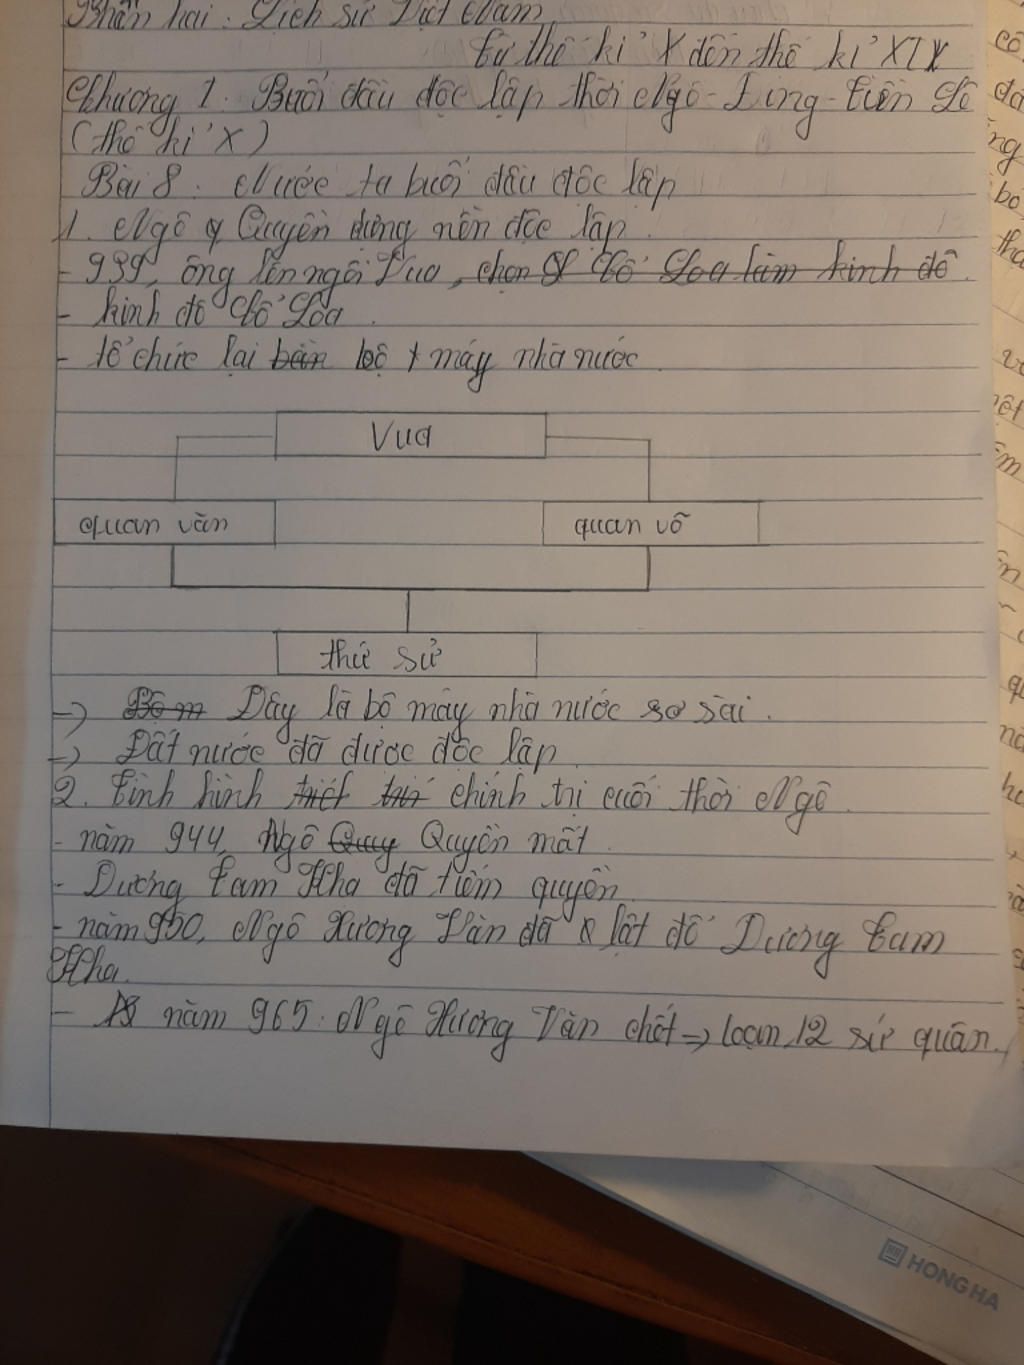 Phần hai. Lịch sử Việt Nam
từ thế kỉ X đến thế kỉ XIX
Chương 1. Buổi đầu độc lập thời Ngô-Đinh-Tiền Lê
(thế kỉ X)
Bài 8. Nước ta buổi đầu độc lập
1. Ngô Quyền dựng nền độc lập.
- 939, ông lên ngôi Vua, chọn Cổ Loa làm kinh đô
- kinh đô Cổ Loa.
- tổ chức lại bộ máy nhà nước
Vua
quan văn
quan võ
thứ sử
=> Bộ m Đây là bộ máy nhà nước sơ sài.
=> Đất nước đã được độc lập
2. Tình hình chính trị cuối thời Ngô.
- năm 944, Ngô Quy Quyền mất.
- Dương Tam Kha đã tiếm quyền
- năm 950, Ngô Xương Văn đã lật đổ Dương Tam
Kha.
- năm 965. Ngô Xương Văn chết => loạn 12 sứ quân.
HONG HA